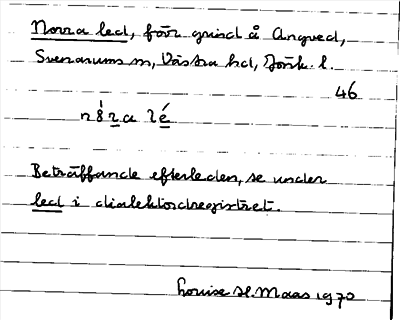 Norra led, förr grind å Angved,
Svenarums sn, Västra hd, Jönk. l.
46
Beträffande efterleden, se under
led i dialektordregistret.
Louise H. Maas 1970